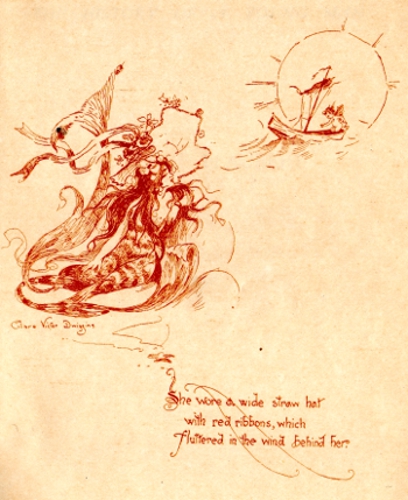 Clara Victor Dwiggins
She wore a wide straw hat
with red ribbons, which
fluttered in the wind behind her.